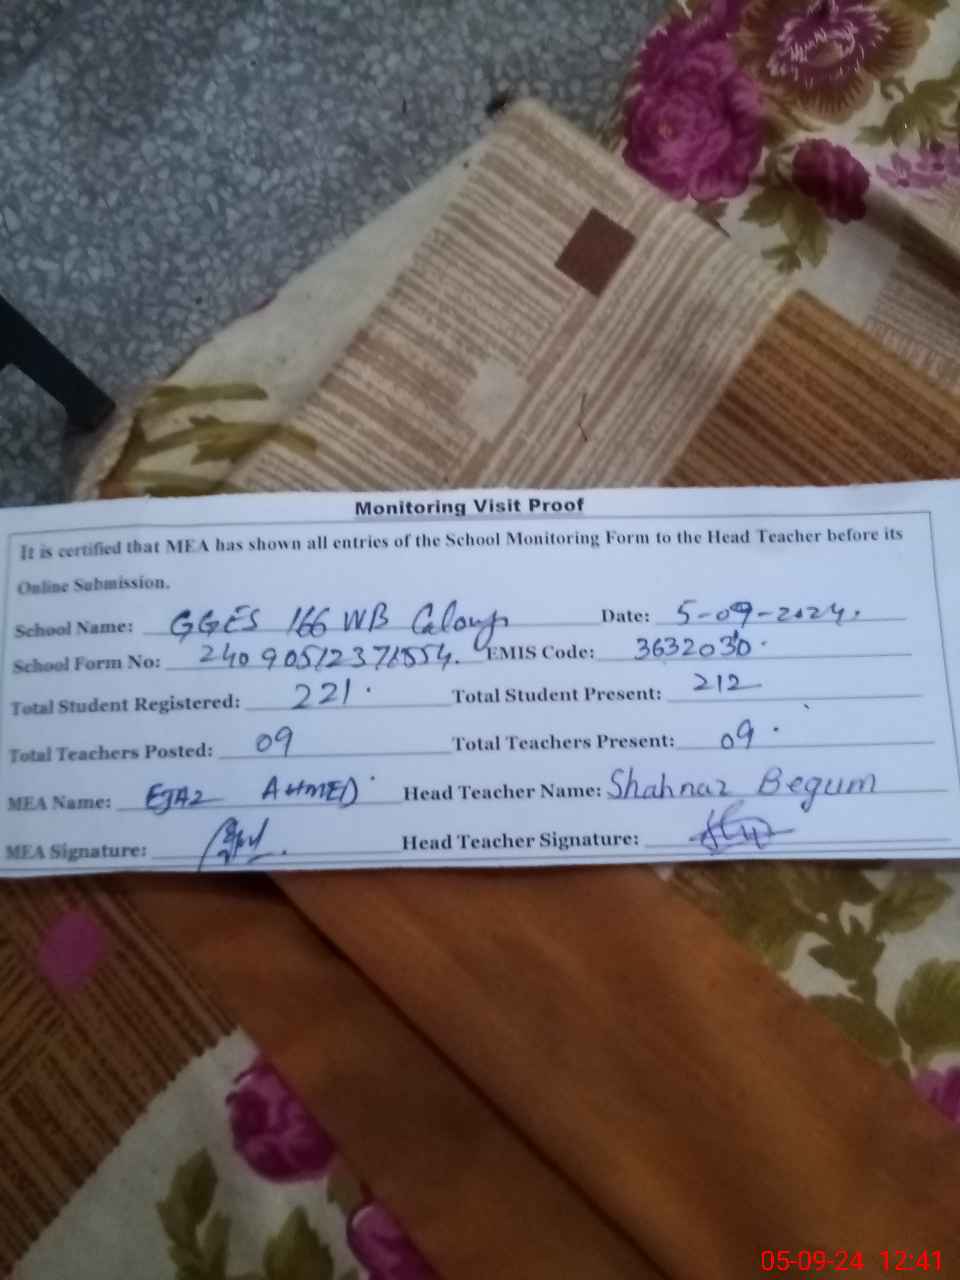 Monitoring Visit Proof
It is certified that MEA has shown all entries of the School Monitoring Form to the Head Teacher before its
Online Submission.
School Name: GGES 166 WB Date: 5-09-2024.
School Form No: EMIS Code: 3632030.
Total Student Registered: 221. Total Student Present: 212
Total Teachers Posted: 09 Total Teachers Present: 09.
MEA Name: EJAZ AHMED Head Teacher Name: Shahnaz Begum
MEA Signature: Head Teacher Signature:
05-09-24 12:41